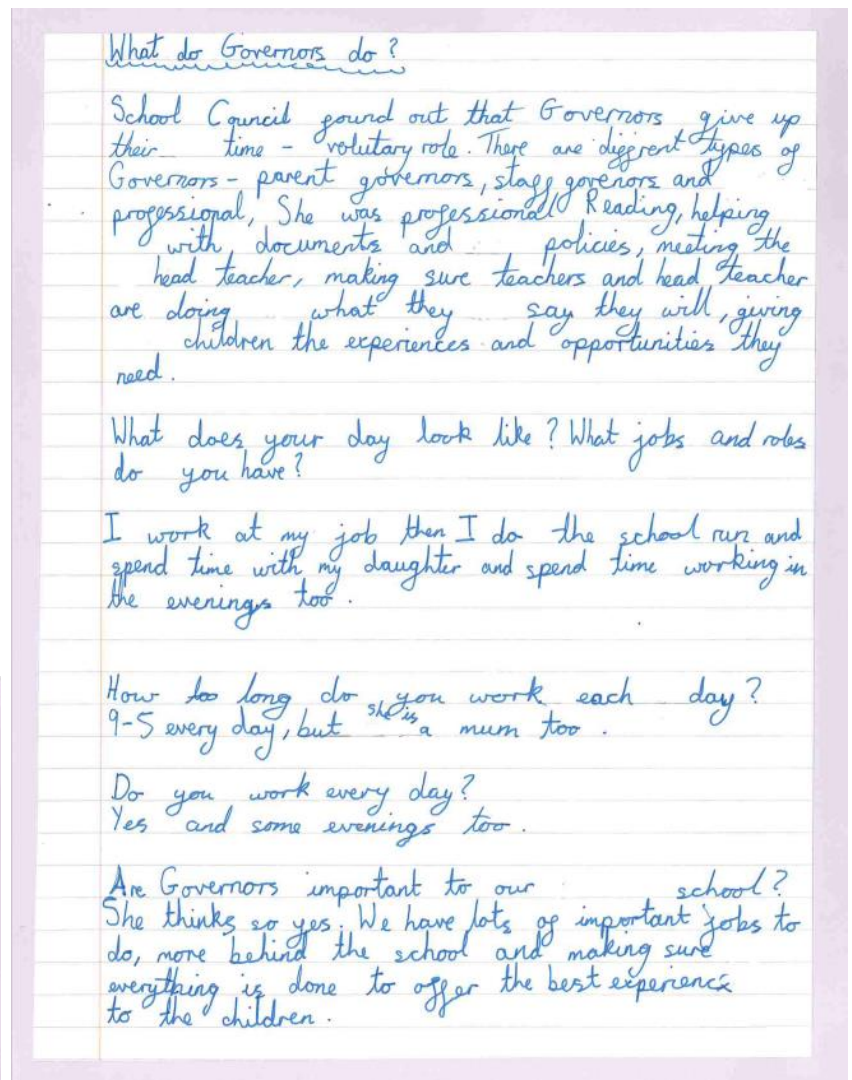 What do Governors do?
School Council found out that Governors give up
their time - volutary role. There are diffrent types of
Governors - parent governors, staff govenors and
professional, She was professional Reading, helping
with documents and policies, meeting the
head teacher, making sure teachers and head teacher
are doing what they say they will, giving
children the experiences and opportunities they
need.
What does your day look like? What jobs and roles
do you have?
I work at my job then I do the school run and
spend time with my daughter and spend time working in
the evenings too.
How too long do you work each day?
9-5 every day, but she is a mum too.
Do you work every day?
Yes and some evenings too.
Are Governors important to our school?
She thinks so yes. We have lots of important jobs to
do, more behind the school and making sure
everything is done to offer the best experience
to the children.